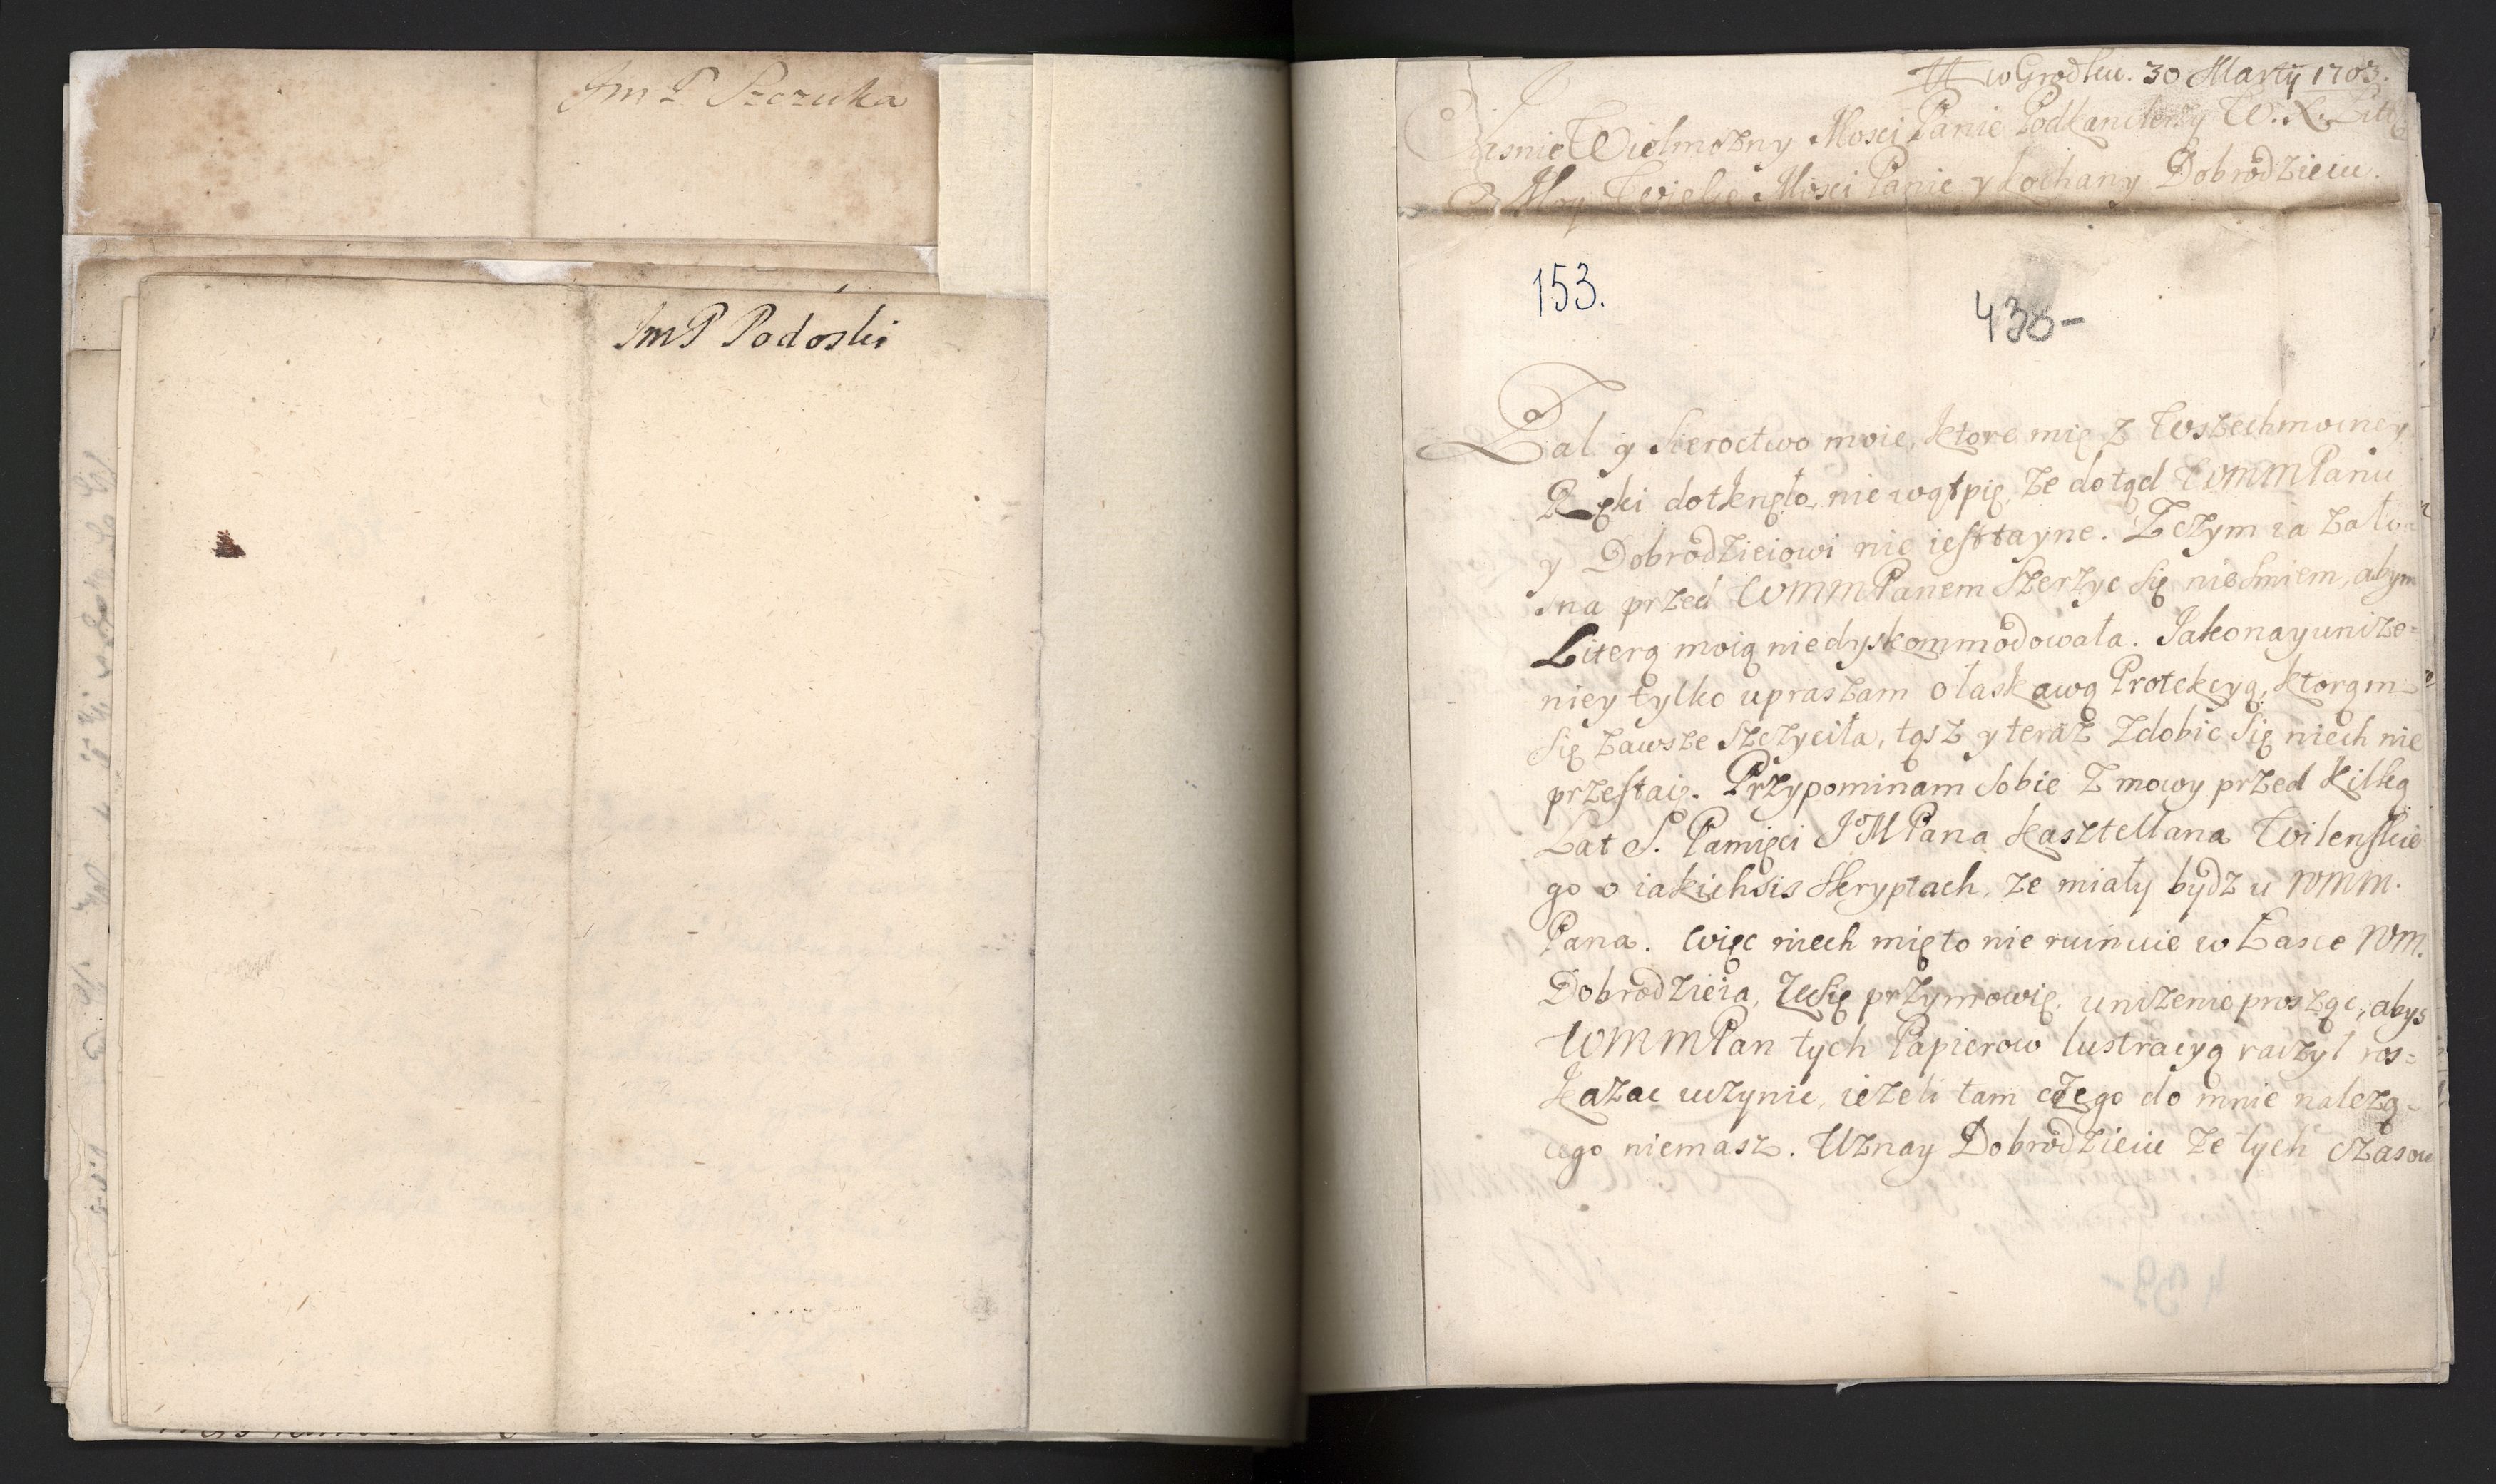 Jm P Szczuka
JmP Podoski
w Grodku. 30 Marty 1703.
Jasnie Wielmozny Mosci Panie Podkanclerzy W. X. Litt
Moy Wielce Mosci Panie y kochany Dobrodzieiu.
153.
438-
Zal y Sieroctwo moie, ktore mię z Wszechmocney
Ręki dotknęło, nie wątpię, ze dotąd WMMPanu
y Dobrodzieiowi nie iest tayne. Z czym ia zało-
sna przed WMMPanem Szerzyc się niesmiem, abym
Literą moią niedyskommodowała. Jako nayunize=
niey tylko upraszam o łaskawą Protekcyą, ktorąm
się zawsze szczyciła, tąsz y teraz zdobic się niech nie
przestaię. Przypominam sobie z mowy przed kilką
Lat S. Pamięci JMPana Kasztellana Wilenskie
go o iakichsis skryptach, ze miały bydz u WMM.
Pana. Więc niech mię to nie ruinuie w Łasce WM.
Dobrodzieia, ze się przymowię, unizenie prosząc, abys
WMMPan tych Papierow lustracyą raczył ros=
kazac uczynic, iezeli tam czego do mnie nalezą=
cego niemasz. Uznay Dobrodzieiu ze tych czasow